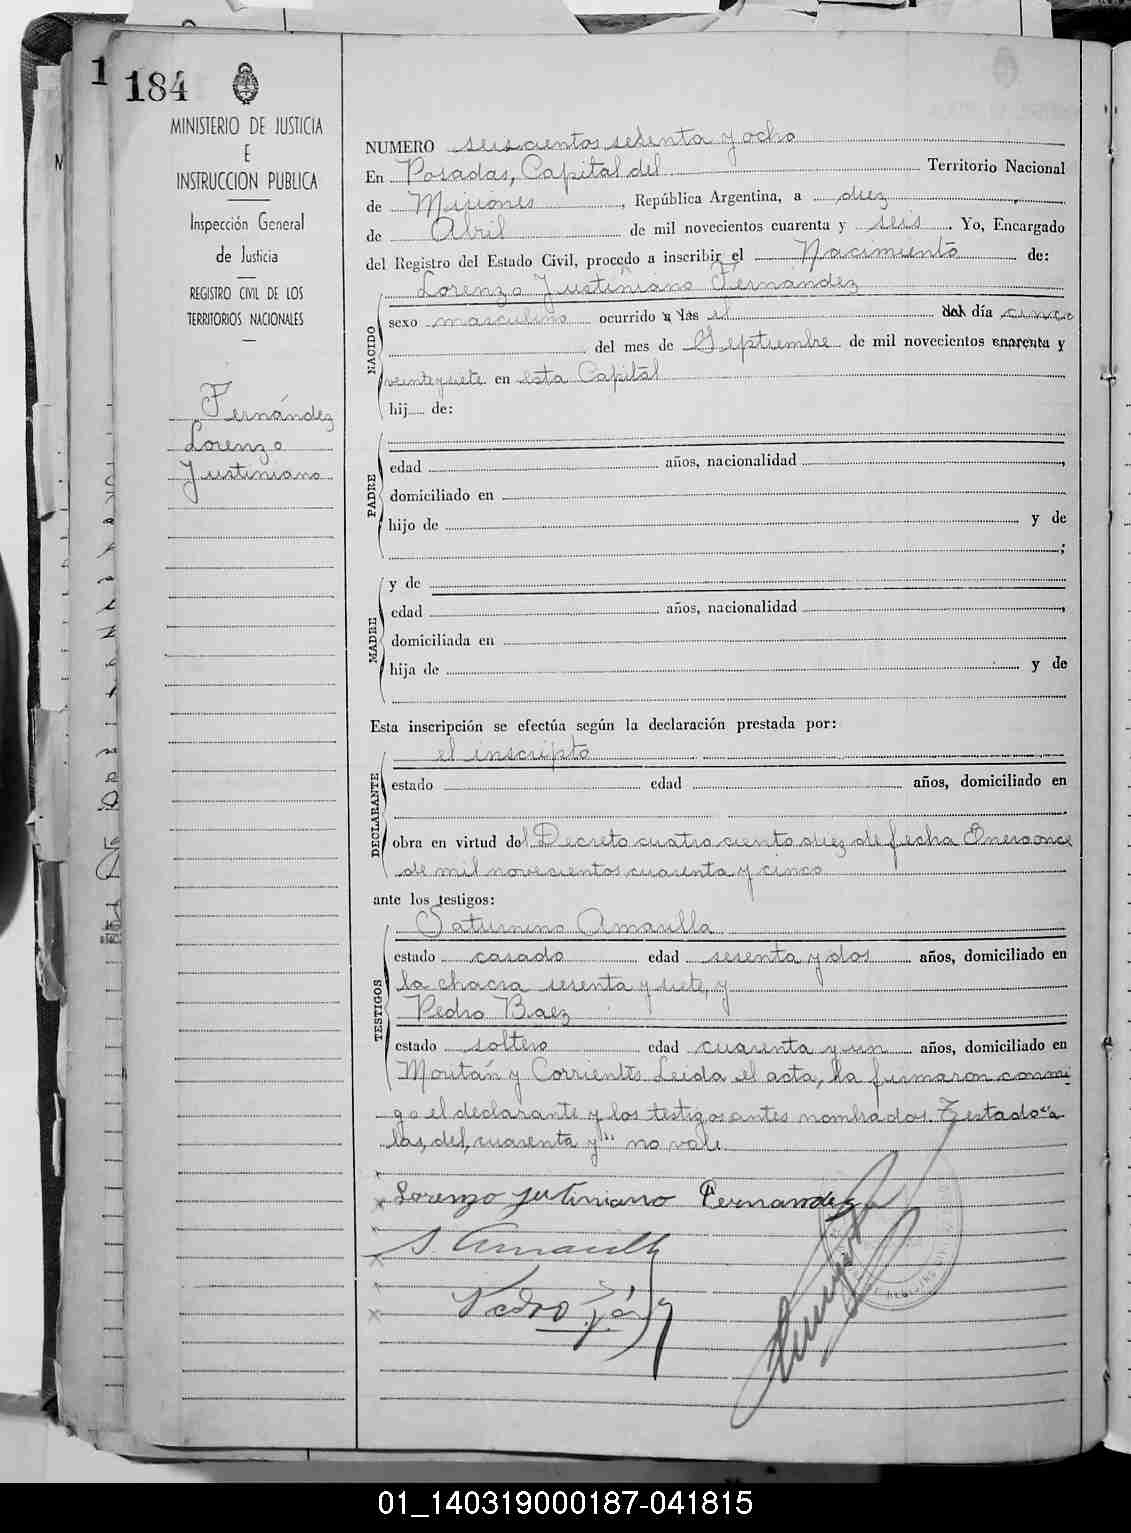 1
184
MINISTERIO DE JUSTICIA
E
INSTRUCCION PUBLICA
Inspección General
de Justicia
REGISTRO CIVIL DE LOS
TERRITORIOS NACIONALES
Fernández
Lorenzo
Justiniano
NUMERO seiscientos sesenta y ocho
En Posadas, Capital del Territorio Nacional
de Misiones, República Argentina, a diez
de Abril de mil novecientos cuarenta y seis. Yo, Encargado
del Registro del Estado Civil, procedo a inscribir el Nacimiento de:
NACIDO
Lorenzo Justiniano Fernández
sexo masculino ocurrido a las el del día cinco
del mes de Septiembre de mil novecientos cuarenta y
veintisiete en esta Capital
hij de:
PADRE
edad años, nacionalidad ,
domiciliado en
hijo de y de
;
MADRE
y de
edad años, nacionalidad ,
domiciliada en
hija de y de
Esta inscripción se efectúa según la declaración prestada por:
DECLARANTE
el inscripto
estado edad años, domiciliado en
obra en virtud del Decreto cuatrociento diez de fecha Enero once
de mil novecientos cuarenta y cinco
ante los testigos:
TESTIGOS
Saturnino Amarilla
estado casado edad sesenta y dos años, domiciliado en
la chacra sesenta y siete, y
Pedro Baez
estado soltero edad cuarenta y un años, domiciliado en
Moritán y Corrientes Leida el acta, la firmaron conmi
go el declarante y los testigos antes nombrados. Testado "a
las, del, cuarenta y" no vale
Lorenzo Justiniano Fernandez
S Amarilla
Pedro
01_140319000187-041815